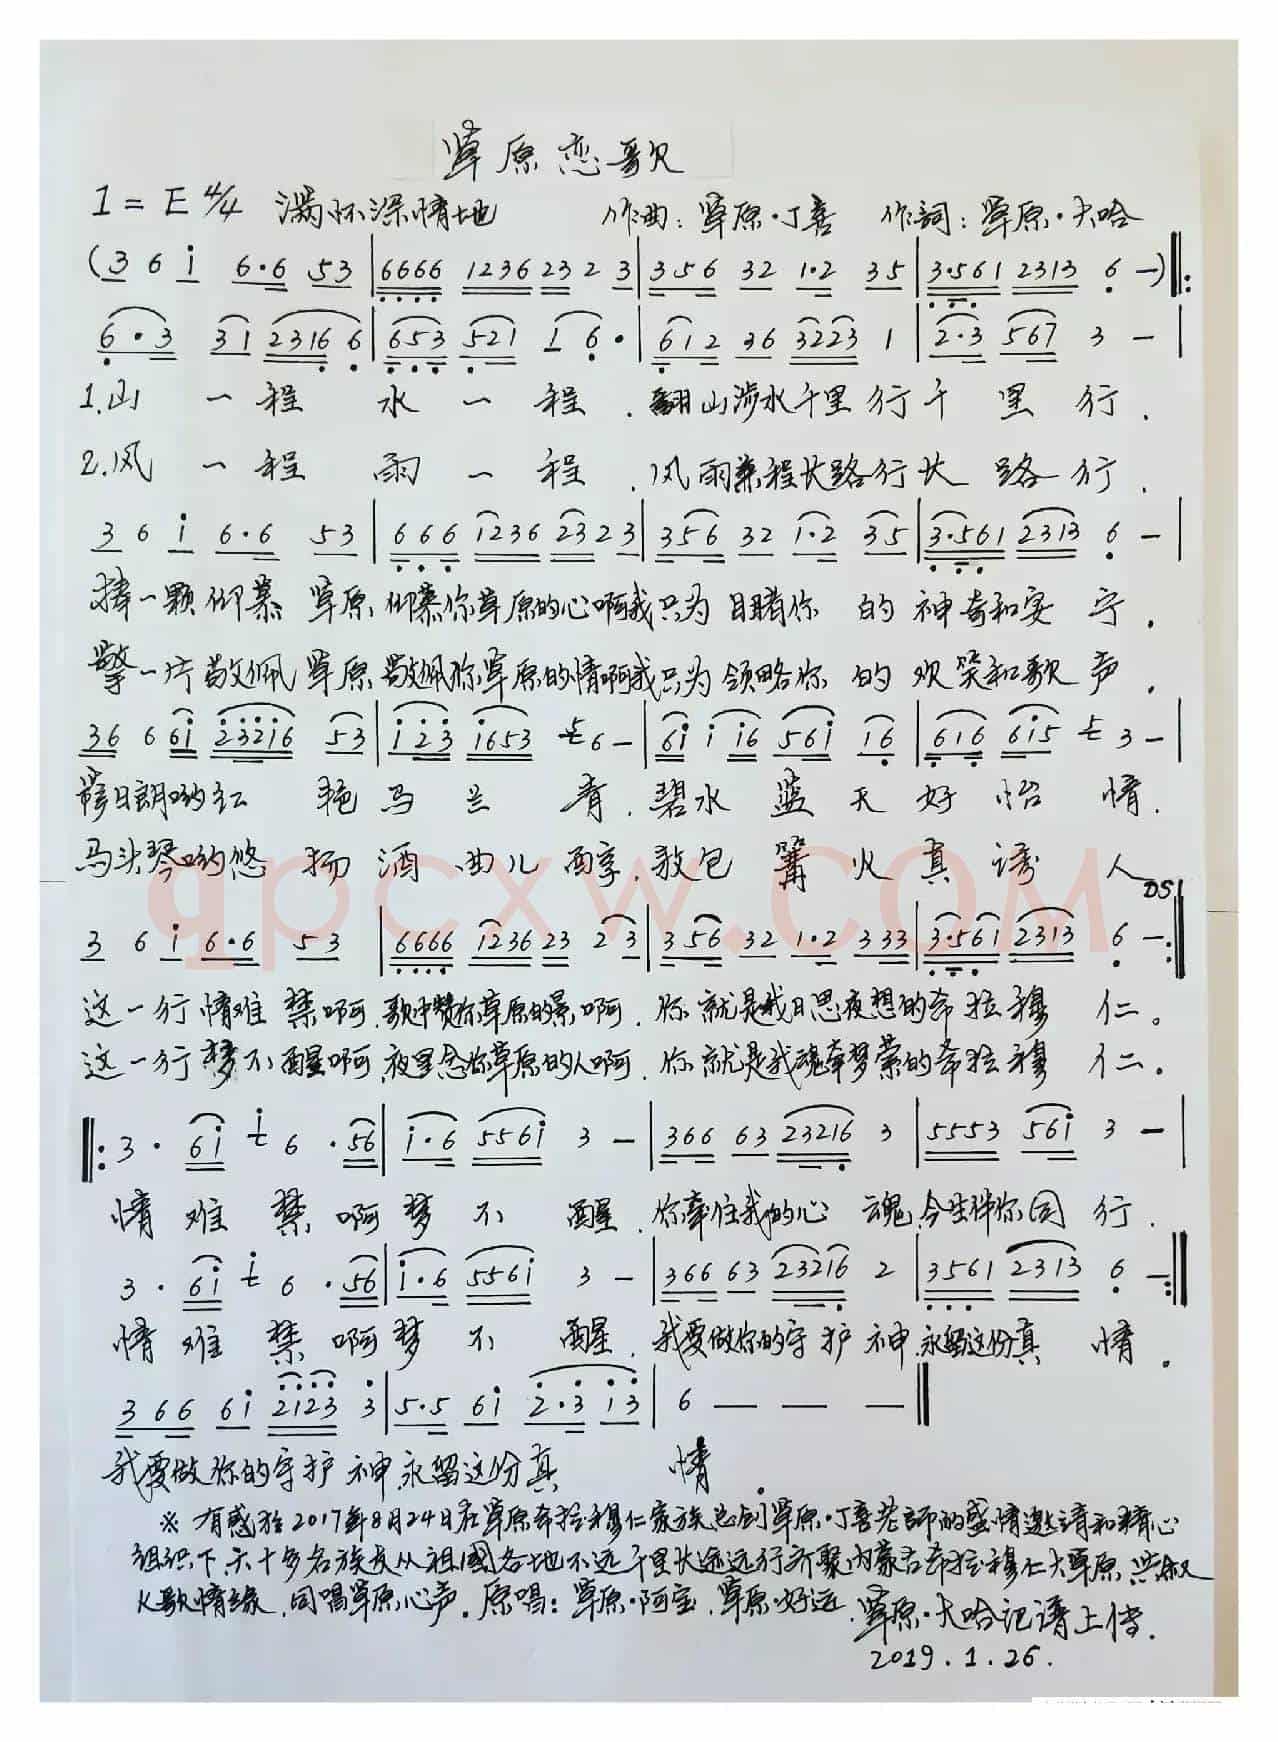 草原恋歌
1=E 4/4 满怀深情地 作曲：草原·丁喜 作詞：草原·大哈
(3 6 i 6·6 53 | 6666 1236 23 2 3 | 356 32 1·2 35 | 3·561 2313 6 —) ‖:
6·3 31 2316 6 | 653 521 1 6· | 612 36 3223 1 | 2·3 567 3 — |
1.山一程水一程.翻山涉水千里行千里行.
2.风一程雨一程.风雨兼程长路行长路行.
3 6 i 6·6 53 | 666 1236 23 2 3 | 356 32 1·2 35 | 3·561 2313 6 — |
捧一颗仰慕草原仰慕你草原的心啊我只为目睹你的神奇和安宁.
擎一片敬佩草原敬佩你草原的情啊我只为领略你的欢笑和歌声.
36 6 6i 23216 53 | i23 i653 6 — | 6i i i6 56i i6 | 6i6 6i5 3 — |
日朗哟红艳马兰青.碧水蓝天好怡情.
马头琴哟悠扬酒曲儿醇.敖包篝火真诱人
DS
3 6 i 6·6 53 | 6666 1236 23 2 3 | 356 32 1·2 333 | 3·561 2313 6 — :‖
这一行情难禁啊.歌中赞你草原的景啊.你就是我日思夜想的希拉穆仁。
这一行梦不醒啊.夜里念你草原的人啊.你就是我魂牵梦萦的希拉穆仁。
‖: 3· 6i i 6·56 | i·6 556i 3 — | 366 63 23216 3 | 5553 56i 3 — |
情难禁啊梦不醒.你牵住我的心魂.今生伴你同行.
3· 6i i 6·56 | i·6 556i 3 — | 366 63 23216 2 | 3561 2313 6 — :‖
情难禁啊梦不醒.我要做你的守护神.永留这份真情.
366 6i 2123 3 | 5·5 6i 2·3 i3 | 6 — — — ‖
我要做你的守护神永留这份真情.
※ 有感于2017年8月24日在草原希拉穆仁家族总创草原·丁喜老師的盛情邀请和精心
组织下六十多名族友从祖國各地不远千里长途远行齐聚内蒙古希拉穆仁大草原共叙
K歌情缘.同唱草原心声。原唱：草原·阿宝.草原·好远.草原·大哈记谱上传.
2019.1.26.
qpcxw.com